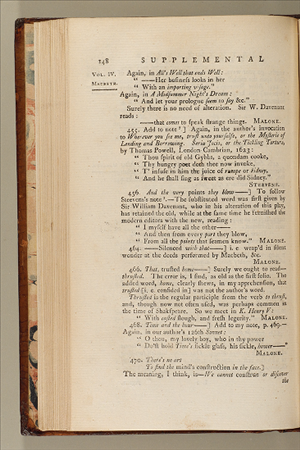 148 SUPPLEMENTAL
VOL. IV.
MACBETH.
Again, in All's Well that ends Well:
" ——Her business looks in her
" With an importing visage."
Again, in A Midsummer Night's Dream:
" And let your prologue seem to say &c."
Surely there is no need of alteration. Sir W. Davenant
reads:
——that comes to speak strange things. MALONE.
455. Add to note ] Again, in the author's invocation
to Wherever you see me, trust unto yourselfe, or the Mysterie of
Lending and Borrowing. Seria Jocis, or the Tickling Torture,
by Thomas Powell, London Cambrian, 1623:
" Thou spirit of old Gybbs, a quondam cooke,
" Thy hungry poet doth thee now invoke,
" T' infuse in him the juice of rumpe or kidney,
" And he shall sing as sweet as ere did Sidney."
STEEVENS.
456. And the very points they blow——] To follow
Steevens's note.—The substituted word was first given by
Sir William Davenant, who in his alteration of this play,
has retained the old, while at the same time he furnished the
modern editors with the new, reading:
" I myself have all the other——
" And then from every port they blow,
" From all the points that seamen know." MALONE.
464. ——Silenced with that——] i. e. wrap'd in silent
wonder at the deeds performed by Macbeth, &c.
MALONE.
466. That, trusted home——] Surely we ought to read—
thrusted. The error is, I find, as old as the first folio. The
added word, home, clearly shews, in my apprehension, that
trusted [i. e. confided in] was not the author's word.
Thrusted is the regular participle from the verb to thrust,
and, though now not often used, was perhaps common in
the time of Shakspeare. So we meet in K. Henry V:
" With casted slough, and fresh legerity." MALONE.
468. Time and the hour——] Add to my note, p. 469.—
Again, in our author's 126th Sonnet:
" O thou, my lovely boy, who in thy power
" Dost hold Time's fickle glass, his sickle, hower——"
MALONE.
470. There's no art
To find the mind's construction in the face.]
The meaning, I think, is—We cannot construe or discover
the